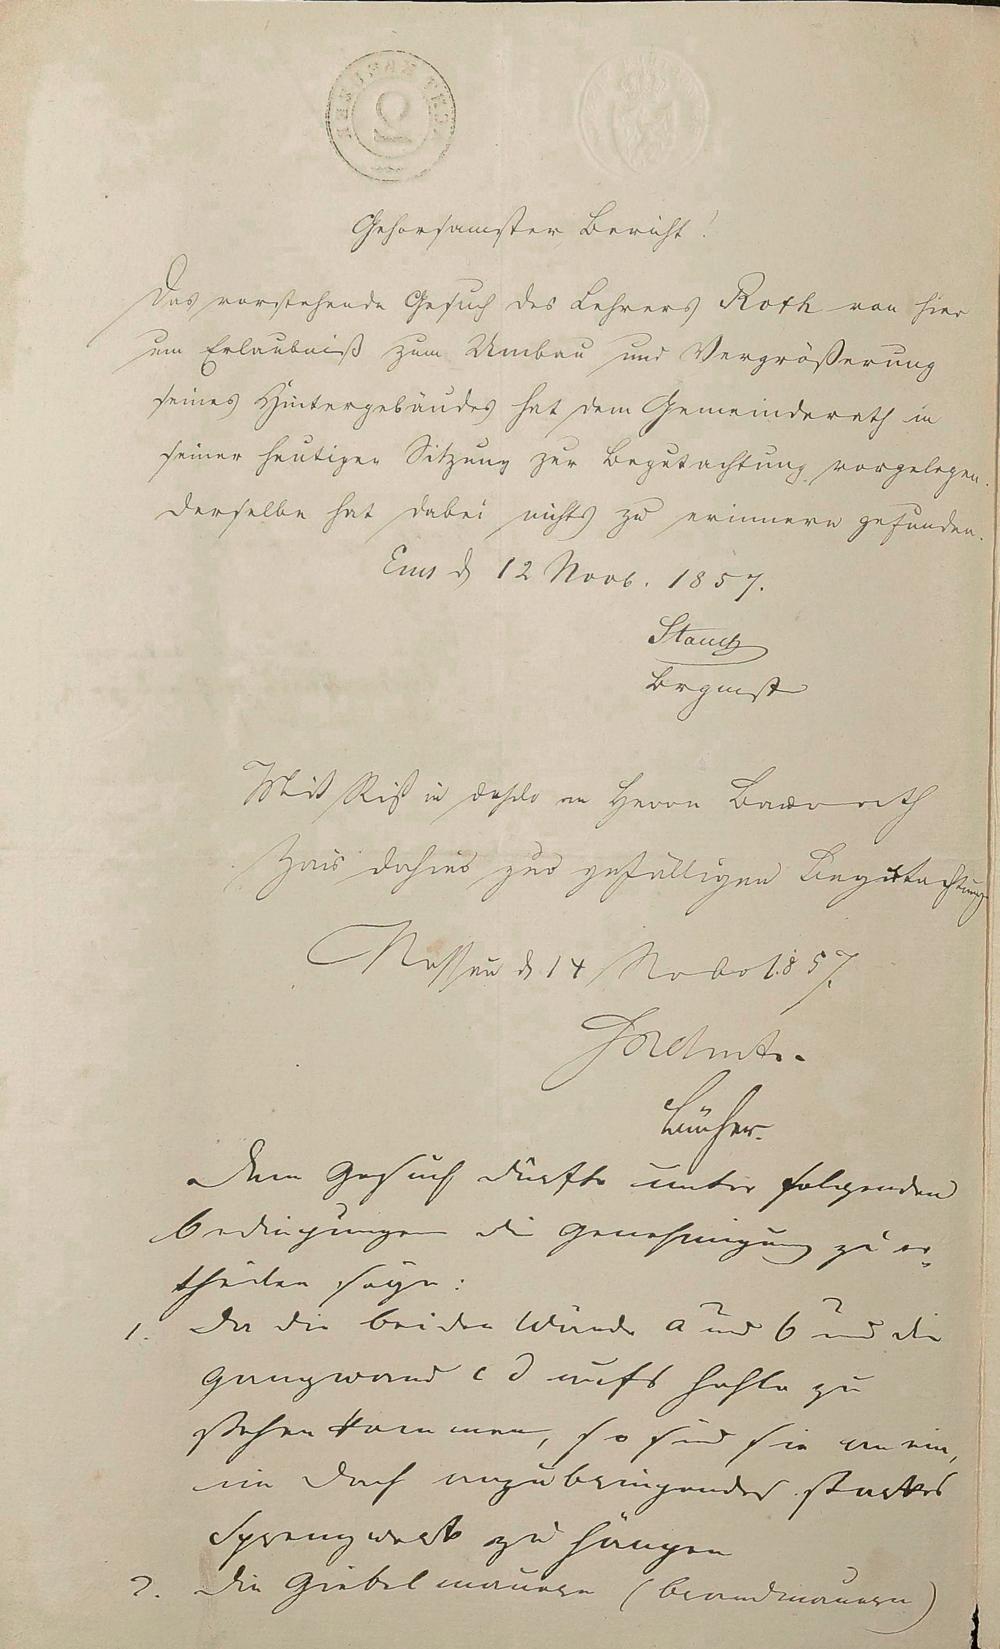 2
Gehorsamster Bericht!
Das vorstehende Gesuch des Lehrers Roth von hier
um Erlaubniß zum Umbau und Vergrößerung
seines Hintergebäudes hat dem Gemeinderath in
seiner heutigen Sitzung zur Begutachtung vorgelegen.
Derselbe hat dabei nichts zu erinnern gefunden.
Ems d 12 Novb. 1857.
Stauch
Brgmst
Mit Riß in duplo an Herrn Baurath
Zais dahier zur gefälligen Begutachtung
Nassau d 14 Novbr 1857.
Bücher.
Dem Gesuch dürfte unter folgenden
bedingungen die Genehmigung zu er-
theilen seyn:
1. Da die beiden Wände a und b und die
gangwand c d aufs hohle zu
stehen kommen, so sind sie an ein,
im Dach anzubringendes starkes
Sprengwerk zu hängen
2. Die Giebelmauern (brandmauern)